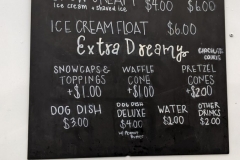 $4.00 $6.00
ice cream + shaved ice
ICE CREAM FLOAT $6.00
Extra Dreamy
CHOCOLATE
SNOWCAPS & TOPPINGS +$1.00
WAFFLE CONE +$1.00
PRETZEL CONES +$2.00
DOG DISH $3.00
DOG DISH DELUXE $4.00
WATER $2.00
OTHER DRINKS $2.00